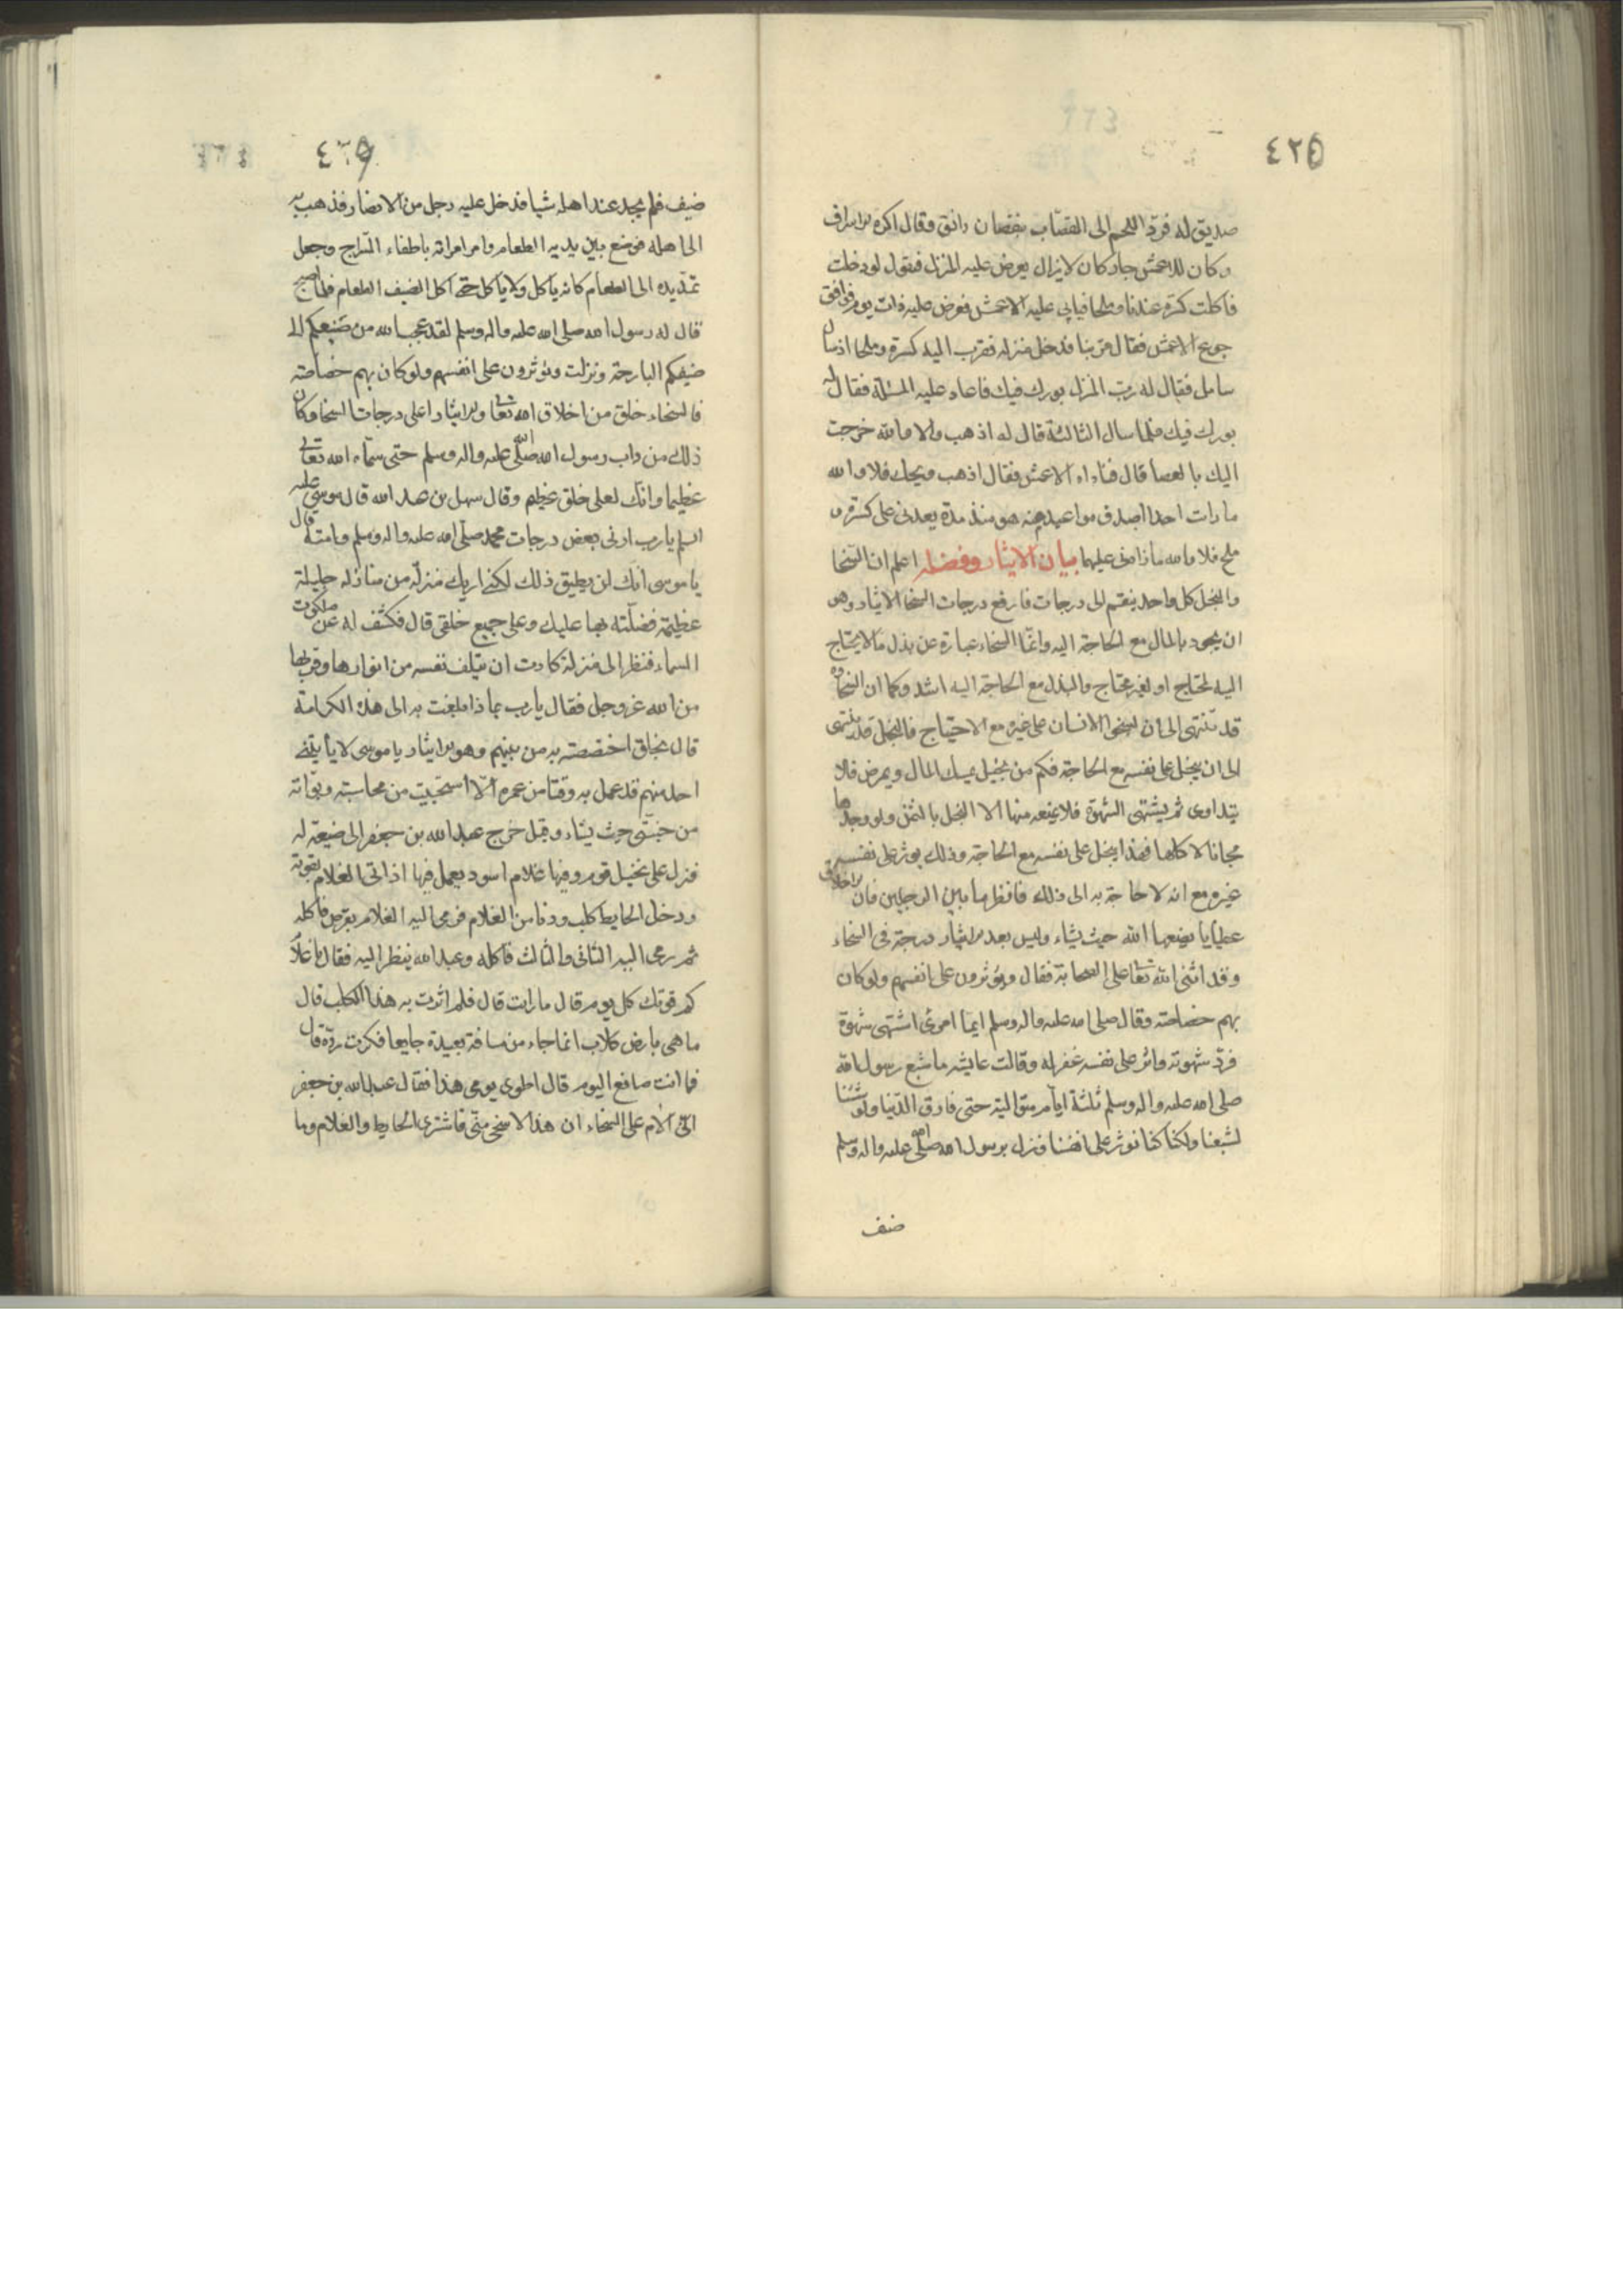 ٤٢٥
صديق له فردّ اللحم الى القصّاب بنقصان دانق وقال اكره الاسراف
وكان للاعمش جار كان لا يزال يعرض عليه المنزل فيقول لو دخلت
فاكلت كسرة عندنا وملحا فيابى عليه الاعمش فعرض عليه ذات يوم فوافق
جوع الاعمش فقال مرّ بنا فدخل منزله فقرب اليه كسرة وملحا اذ سال
سايل فقال له رب المنزل بورك فيك فاعاد عليه المسئلة فقال له
بورك فيك فلما سال الثالثة قال له اذهب والا والله خرجت
اليك بالعصا قال فناداه الاعمش فقال اذهب ويحك فلا والله
ما رات احدا اصدق مواعيد منه هو منذ مدة يعدنى على كسرة و
ملح فلا والله ما زادنى عليهما بيان الايثار وفضله اعلم ان السّخا
والبخل كل واحد ينقسم الى درجات فارفع درجات السخا الايثار وهو
ان يجود بالمال مع الحاجة اليه وانّما السخاء عبارة عن بذل ما لا يحتاج
اليه لمحتاج او لغير محتاج والبذل مع الحاجة اليه اشد وكما ان السّخاوة
قد تنتهى الى ان يسخى الانسان على غيره مع الاحتياج فالبخل قد ينتهى
الى ان يبخل على نفسه مع الحاجة فكم من بخيل يمسك المال ويمرض فلا
يتداوى ثم يشتهى الشهوة فلا يمنعه منها الا البخل بالثمن ولو وجدها
مجانا لاكلها فهذا يبخل على نفسه مع الحاجة وذلك يوثر على نفسه
غيره مع انه لا حاجة به الى ذلك فانظر ما بين الرجلين فان الاخلاق
عطايا يضعها الله حيث يشاء وليس بعد الايثار درجة فى السخاء
وقد اثنى الله تعا على الصحابة فقال ويؤثرون على انفسهم ولو كان
بهم خصاصة وقال صلى الله عليه واله وسلم ايّما امرئ اشتهى شهوة
فردّ شهوته واثر على نفسه غفر له وقالت عايشه ما شبع رسول الله
صلى الله عليه واله وسلم ثلثة ايام متوالية حتى فارق الدّنيا ولو شئنا
لشبعنا ولكنا كنا نوثر على انفسنا ونزل برسول الله صلّى الله عليه واله وسلم
ضيف
٤٢٦
ضيف فلم يجد عند اهله شيا فدخل عليه رجل من الانصار فذهب به
الى اهله فوضع بين يديه الطعام وامر امراته باطفاء السّراج وجعل
تمدّ يده الى الطعام كانه ياكل ولا ياكل حتى اكل الضيف الطعام فلما اصبح
قال له رسول الله صلى الله عليه واله وسلم لقد عجب الله من صنيعكم الى
ضيفكم البارحة ونزلت ويوثرون على انفسهم ولو كان بهم خصاصة
فالسخاء خلق من اخلاق الله تعا والايثار اعلى درجات السخا وكان
ذلك من داب رسول الله صلّى الله عليه واله وسلم حتى سمّاه الله تعالى
عظيما وانّك لعلى خلق عظيم وقال سهل بن عبد الله قال موسى عليه
السلم يا رب ارنى بعض درجات محمد صلّى الله عليه واله وسلم وامته قال
يا موسى انّك لن يطيق ذلك لكنى اريك منزلة من منازله جليلة
عظيمة فضلته بها عليك وعلى جميع خلقى قال فكشف له عن ملكوت
السماء فنظر الى منزلة كادت ان يتلف نفسه من انوارها وقربها
من الله عز وجل فقال يا رب بماذا بلغت به الى هذه الكرامة
قال بخلق اختصصته به من بينهم وهو الايثار يا موسى لا ياتينى
احد منهم قد عمل به وقتا من عمره الّا استحييت من محاسبته وبوّاته
من جنّتى حيث يشاء وقيل خرج عبد الله بن جعفر الى ضيعة له
فنزل على نخيل قوم وفيها غلام اسود يعمل فيها اذ اتى الغلام بقوته
ودخل الحايط كلب ودنا من الغلام فرمى اليه الغلام بقرص فاكله
ثم رمى اليه الثانى والثالث فاكله وعبد الله ينظر اليه فقال يا غلام
كم قوتك كل يوم قال ما رات قال فلم اثرت به هذا الكلب قال
ما هى بارض كلاب انما جاء من مسافة بعيدة جايعا فكرهت ردّه قال
فما انت صانع اليوم قال اطوى يومى هذا فقال عبد الله بن جعفر
الى الام على السخاء ان هذا لاسخى منّى فاشترى الحايط والغلام وما